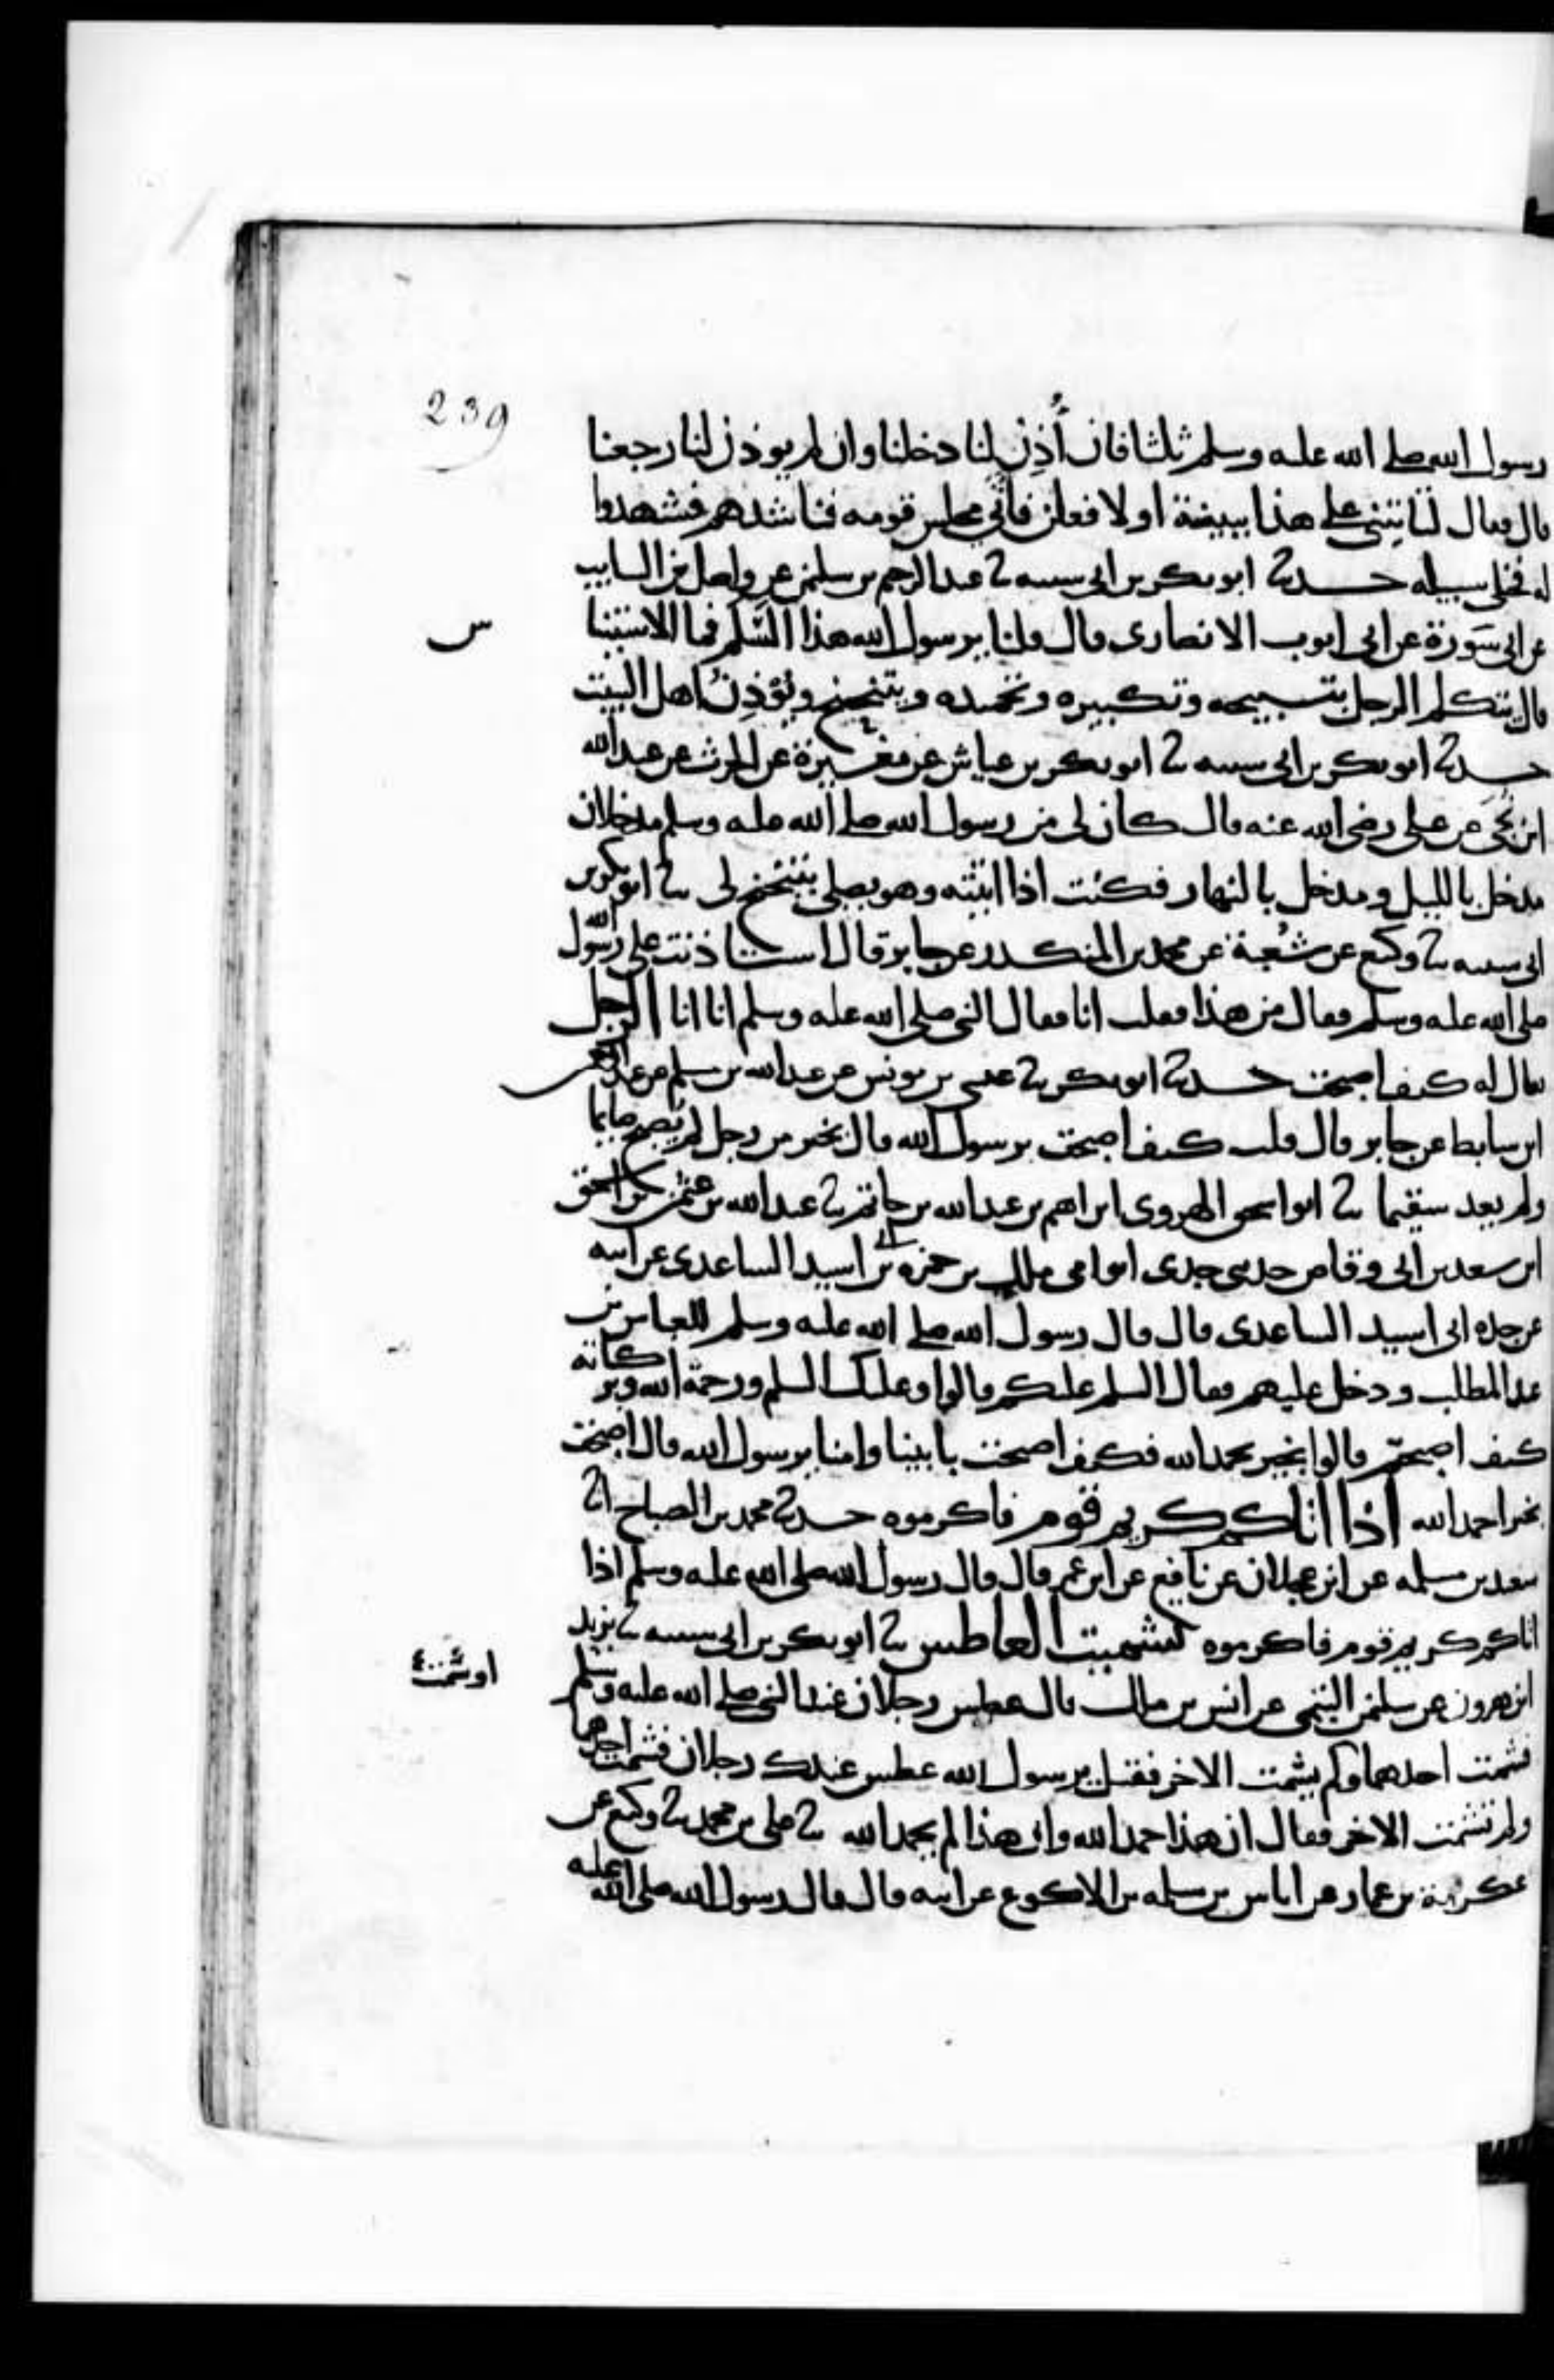 239
رسول الله صلى الله عليه وسلم ثلثا فان أُذِن لنا دخلنا وان لم يوذن لنا رجعنا
قال فقال لتاتيني على هذا ببينة او لافعلن فاتى مجلس قومه فناشدهم فشهدوا
له فخلى سبيله حدثنا ابو بكر بن ابي شيبه ثنا عبد الرحيم بن سليمن عن واصل بن السايب
عن ابي سَورة عن ابي ايوب الانصارى قال قلنا يرسول الله هذا السَّلم فما الاستينا
س
قال يتكلم الرجل بتسبيحه وتكبيره وتحميده ويتنحنح ويؤذِنُ اهل البيت
حدثنا ابو بكر بن ابي شيبه ثنا ابو بكر بن عياش عن مغيرة عن الحرث عن عبد الله
ابن نُجَى عن على رضى الله عنه قال كان لى من رسول الله صلى الله عليه وسلم مدخلان
مدخل بالليل ومدخل بالنهار فكنت اذا اتيته وهو يصلى يتنحنح لى ثنا ابو بكر بن
ابي شيبه ثنا وكيع عن شُعبة عن محمد بن المنكدر عن جابر قال استاذنت على رسول الله
صلى الله عليه وسلم فقال من هذا فقلت انا فقال النبي صلى الله عليه وسلم انا انا الرجل
يقال له كيف اصبحت حدثنا ابو بكر ثنا عيسى بن يونس عن عبد الله بن مسلم عن عبد الرحمن
ابن سابط عن جابر قال قلت كيف اصبحت يرسول الله قال بخير من رجل لم يصبح صايما
ولم يعد سقيما ثنا ابو اسحق الهروى ابراهيم بن عبد الله بن حاتم ثنا عبد الله بن عثمن بن اسحق
ابن سعد بن ابي وقاص حدثنى جدى ابو امى ملك بن حمزه بن ابي اسيد الساعدى عن ابيه
عن جده ابي اسيد الساعدى قال قال رسول الله صلى الله عليه وسلم للعباس بن
عبد المطلب ودخل عليهم فقال السلم عليكم قالوا وعليك السلم ورحمة الله وبركاته
كيف اصبحتم قالوا بخير بحمد الله فكيف اصبحت بابينا وامنا يرسول الله قال اصبحت
بخير احمد الله اذا اتاكم كريم قوم فاكرموه حدثنا محمد بن الصباح انا
سعيد بن مسلمه عن ابن عجلان عن نافع عن ابن عمر قال قال رسول الله صلى الله عليه وسلم اذا
اتاكم كريم قوم فاكرموه تشميت العاطس ثنا ابو بكر بن ابي شيبه ثنا يزيد
ابن هرون عن سليمن التيمى عن انس بن مالك قال عطس رجلان عند النبي صلى الله عليه وسلم
فشمت احدهما ولم يشمت الاخر فقيل يرسول الله عطس عندك رجلان فشمت احدهما
ولم تشمت الاخر فقال ان هذا حمد الله وان هذا لم يحمد الله ثنا على بن محمد ثنا وكيع عن
عكرمة بن عمار عن اياس بن سلمه بن الاكوع عن ابيه قال قال رسول الله صلى الله عليه